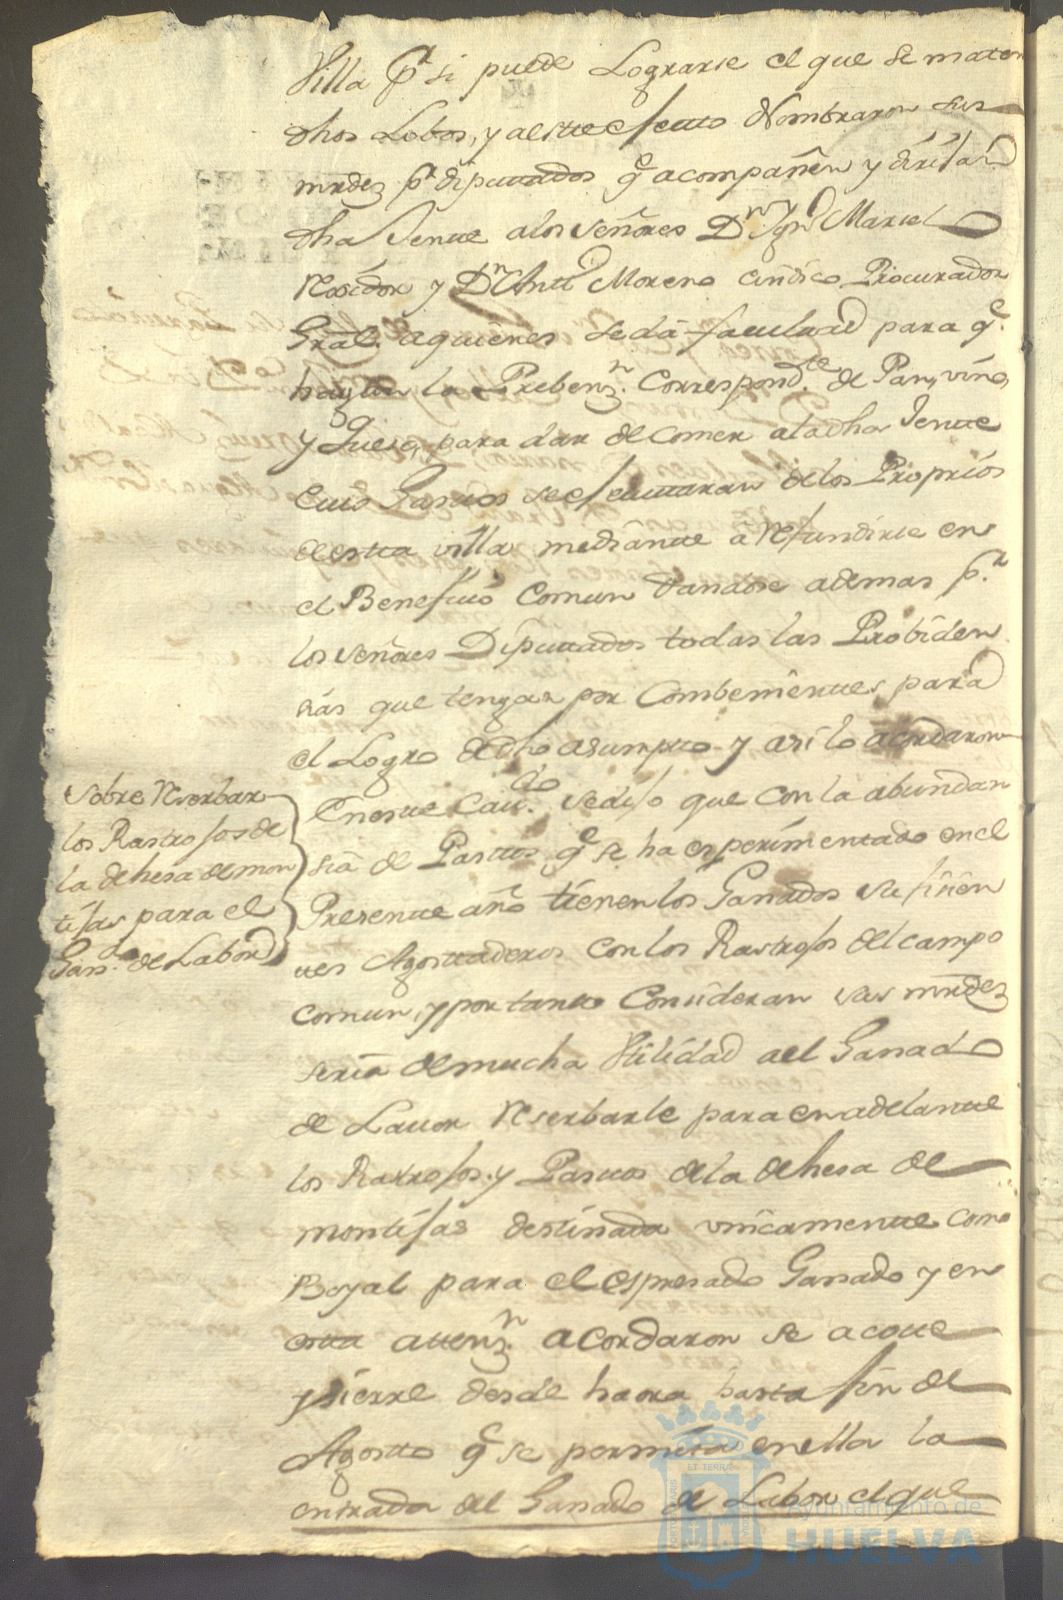 Villa pr si puede Lograrse el que se maten
dhos Lobos, y aeste efecto Nombraron sus
mrdez pr diputados q.e acompañen y dirijan
dha Jente alos señores Dn Ign.o Mariel
Rexidor y Dn Antt.o Moreno cindico Procurador
Gral. aquienes se dá facultad para q.e
hagan la Prebenz.n Correspond.te de Pan, vino,
y Queso, para dar de comer aladha Jente
cuios Gastos se efectuaran delos Proprios
de esta villa mediante á Refundirse en
el Beneficio Comun dandose ademas p.r
los señores Diputados todas las Probiden
sias que tengan por Combenientes para
el Logro de dho asumpto y asi lo acordaron
Sobre Reserbar
los Rastrojos de
la dehesa de mon
tijas para el
Gan.o de Labor
En este Cav.do se dijo que con la abundan
sia de Pastos q.e se ha esperimentado en el
Presente año tienen los Ganados sufisien
tes Agostaderos con los Rastrojos del campo
comun, y por tanto Consideran sus mrdez
seria de mucha Utilidad ael Ganado
de Lavor Reserbarle para en adelante
los Rastrojos y Pastos dela dehesa de
montijas destinada unicamente como
Boyal para el espresado Ganado y en
esta attenz.n acordaron se acote
y sierre desde haora hasta fin de
Agosto q.e se permita en ella la
entrada del Ganado de Labor el que
ET TERRAE
Ayuntamiento de
HUELVA